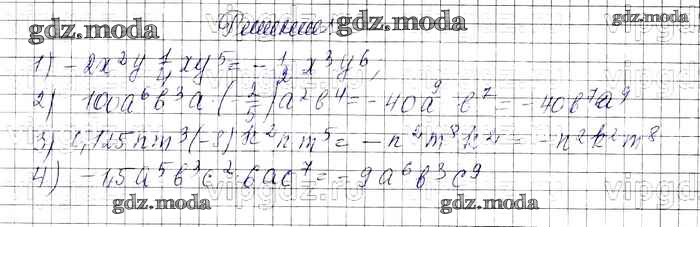 gdz.moda Решение gdz.moda gdz.moda
1) -2x²y 1/4 xy⁵ = -1/2 x³y⁶,
2) 100a⁶b³a (-2/5) a²b⁴ = -40a⁹ b⁷ = -40b⁷a⁹
3) 0,125nm³(-8)k²nm⁵ = -n²m⁸k² = -n²k²m⁸
4) -1,5a⁵b³c² · 6ac⁷ = -9a⁶b³c⁹
gdz.moda gdz.moda